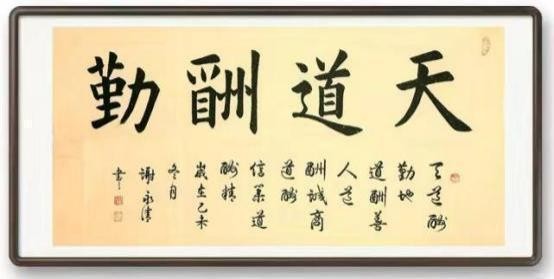 天道酬勤
天道酬
勤地
道酬善
人道
酬誠商
道酬
信業道
酬精
歲在己未
冬月
謝永清
書